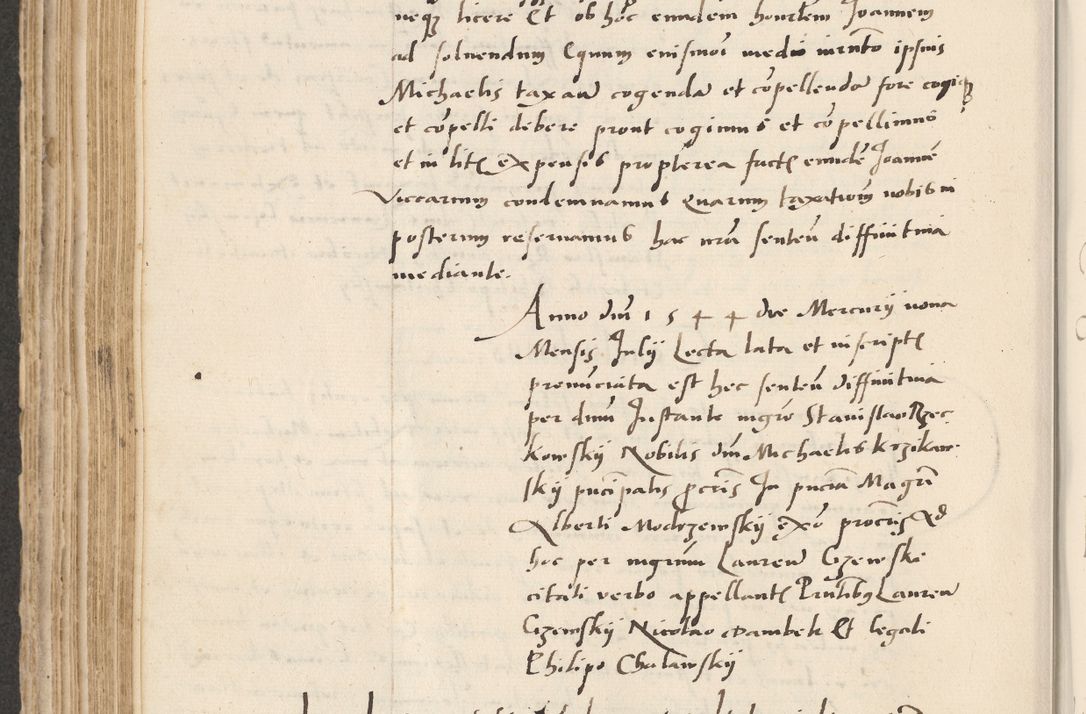 neqz licere Et ob hoc eundem honorem Joannem
ad soluendum Equum eiusmoi medio iurnto ipsius
Michaelis taxan cogendu et copellendu fore cogiqz
et copelli debere prout cogimus et copellimus
et in litis expensis propterea factis eunde Joanne
Viccarium condemnamus Quarum taxationem nobis in
posterum reseruamus hac nra senten diffinitiua
mediante.
Anno dni 1544 die Mercurij nona
Mensis Julij Lecta lata et in scriptis
pronunciata est hec senten diffinitiua
per dnum Instante mgro Stanislao Rzec
kowskij Nobilis dni Michaelis Krzikaw
skij principalis procris In pncia Magri
Alberti Modrzewskij exo procris Ad
hoc per mgrum Lauren Gzewski
citati verbo appellantis Pntibus Lauren
Gzewskij Nicolao Dambek Et legali
Philipo Chalawskij